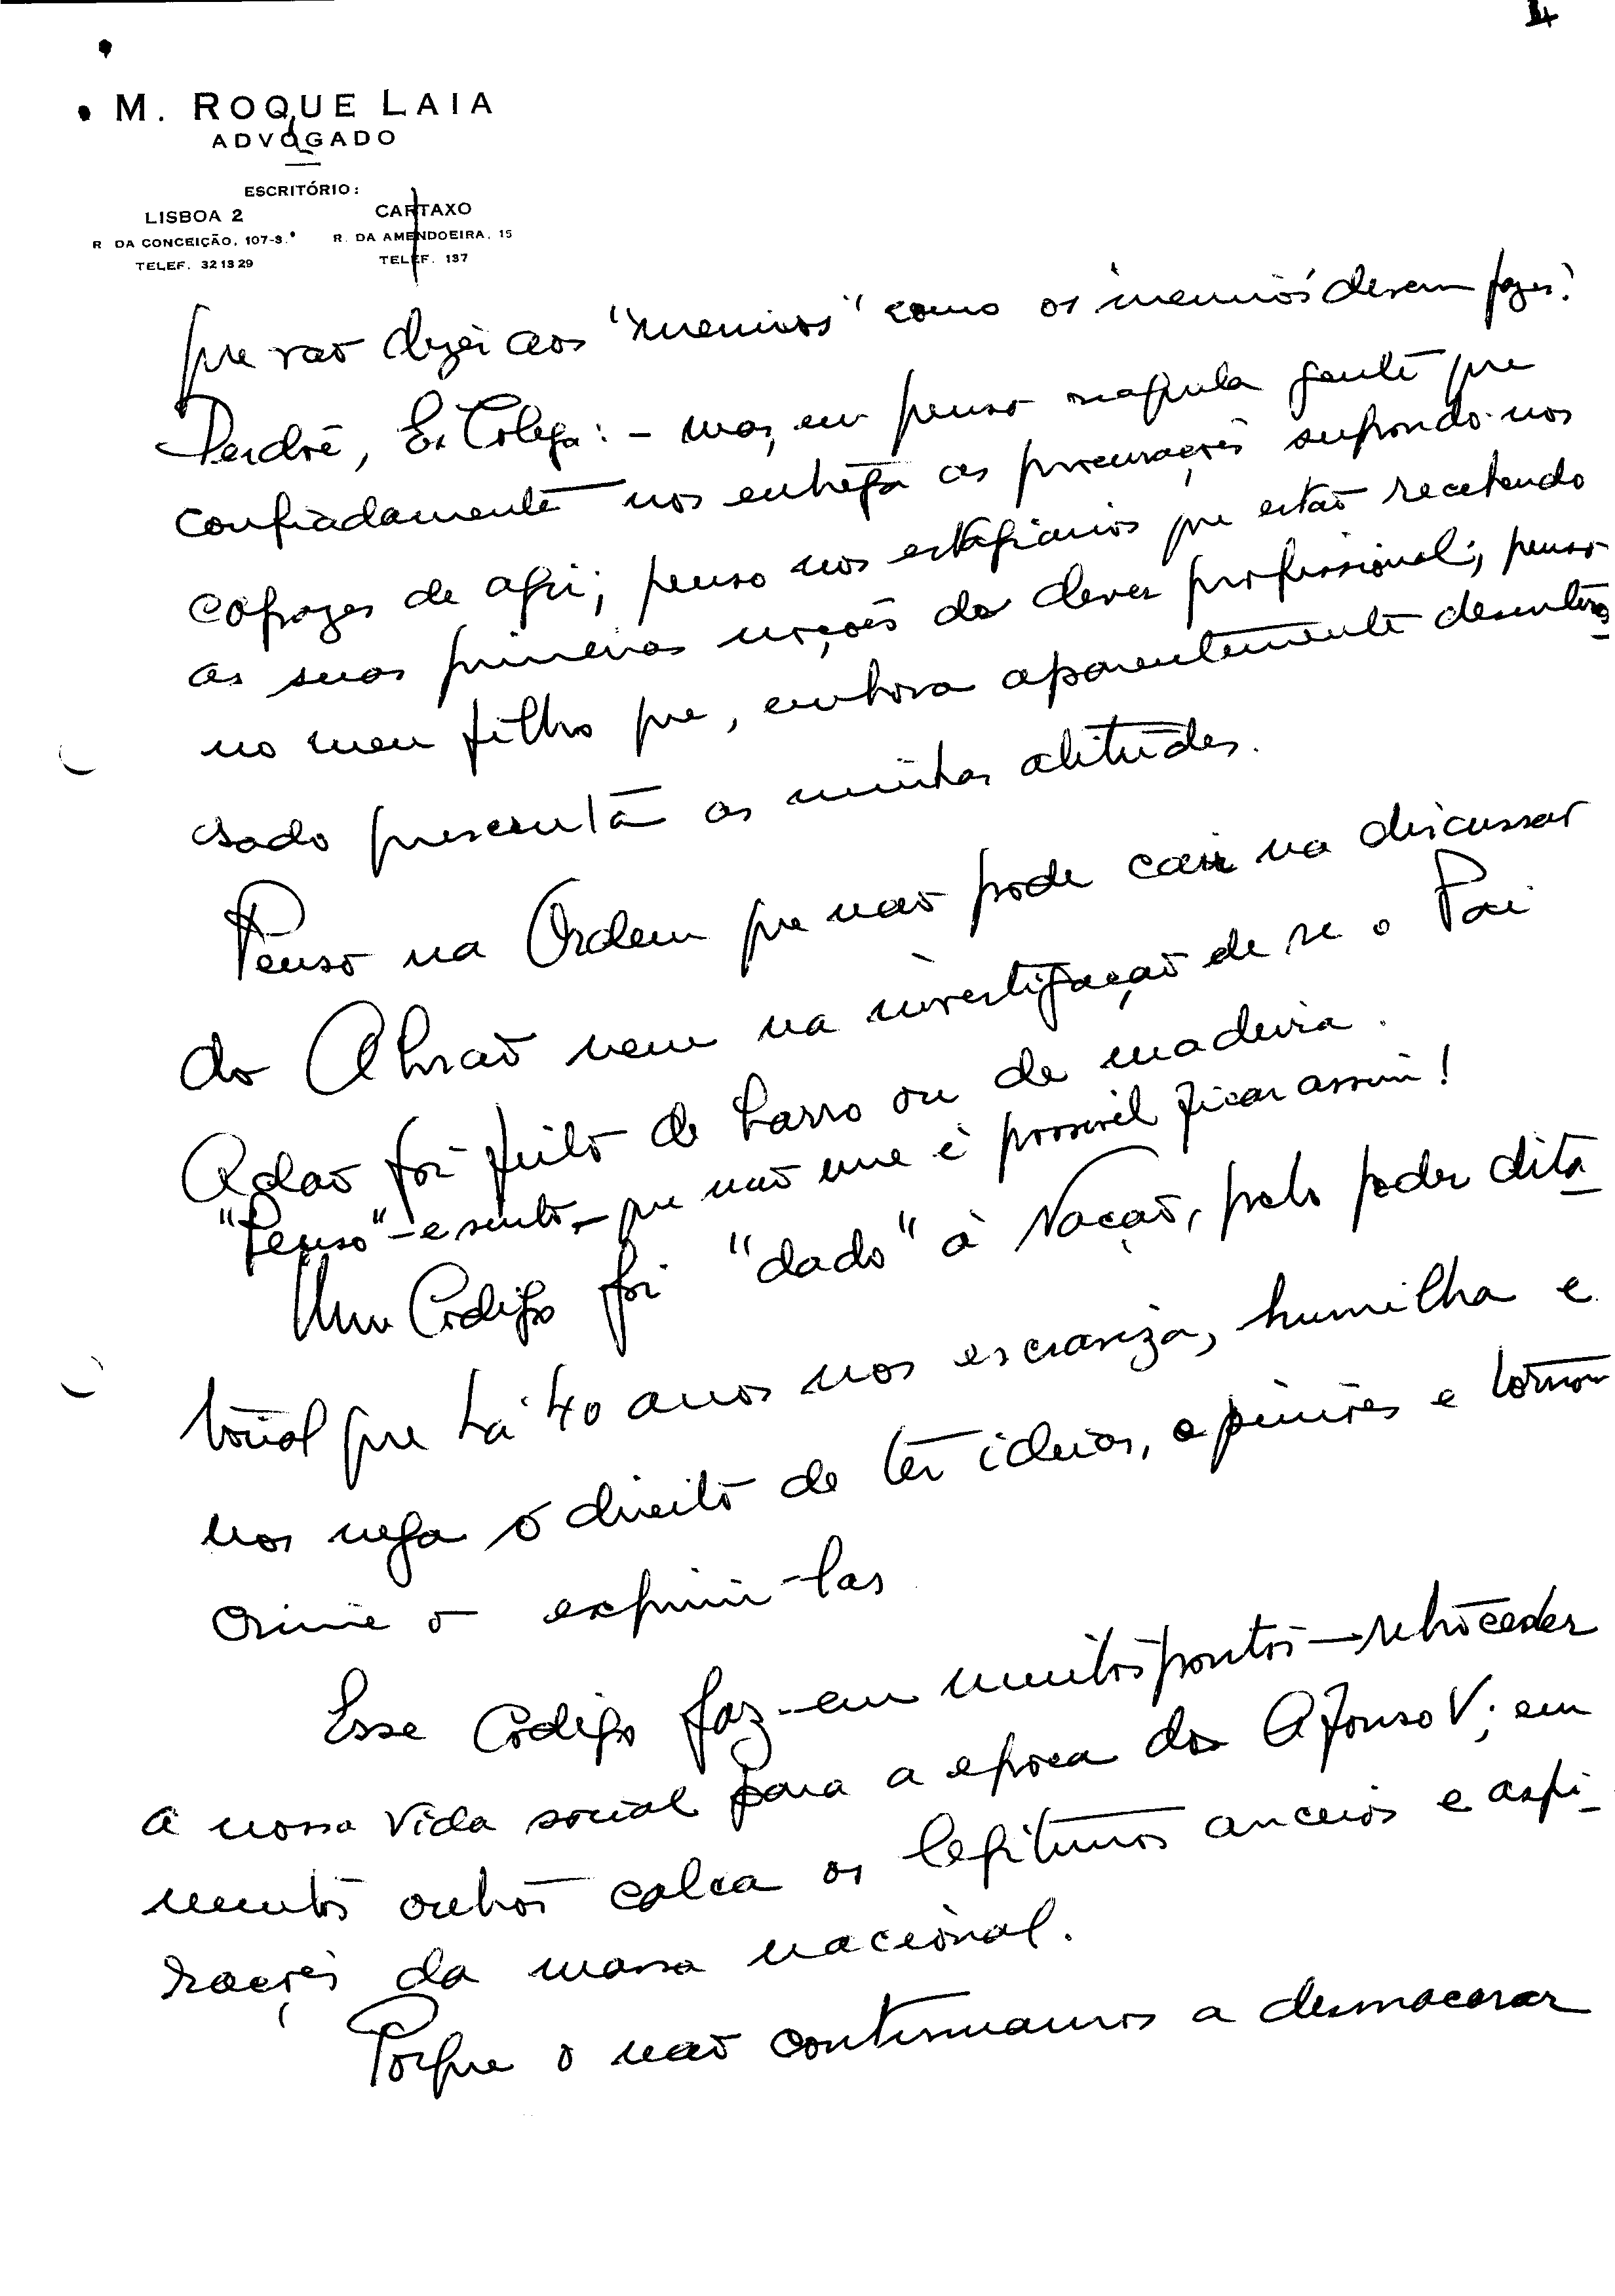 4
M. ROQUE LAIA
ADVOGADO
ESCRITÓRIO:
LISBOA 2
R DA CONCEIÇÃO, 107-3.º
TELEF. 321329
CARTAXO
R. DA AMENDOEIRA, 15
TELEF. 137
que vão dizer aos "meninos" como os "meninos" devem fazer?
Perdôe, Ex Colega: - mas, eu penso naquela gente que
confiadamente nos entrega as procurações supondo-nos
capazes de agir; penso nos estagiarios que estão recebendo
as suas primeiras noções do dever profissional; penso
no meu filho que, embora aparentemente desinteres
sado prescruta as minhas atitudes.
Penso na Ordem que não pode cair na discussão
do Abraão nem na investigação de se o Pai
Adão foi feito de barro ou de madeira.
"Penso" - e sinto - que não me é possivel ficar assim!
Um Codigo foi "dado" à Nação, pelo poder dita
torial que há 40 anos nos escraviza, humilha e
nos nega o direito de ter ideias, opiniões e tornou
crime o exprimi-las
Esse Codigo faz - em muitos pontos - retroceder
a nossa vida social para a epoca do Afonso V; em
muitos outros calca os legitimos anceios e aspi-
rações da massa nacional.
Porque o não continuamos a desmacarar